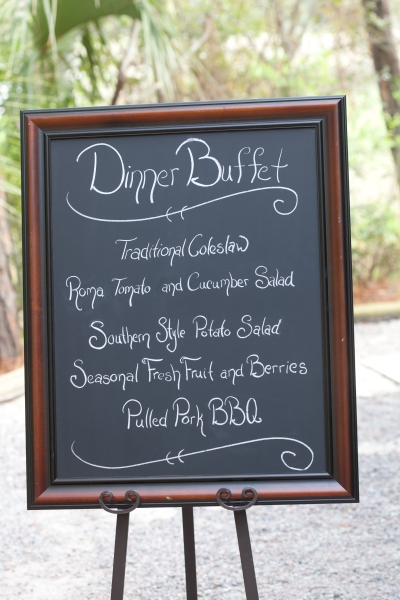 Dinner Buffet
Traditional Coleslaw
Roma Tomato and Cucumber Salad
Southern Style Potato Salad
Seasonal Fresh Fruit and Berries
Pulled Pork BBQ